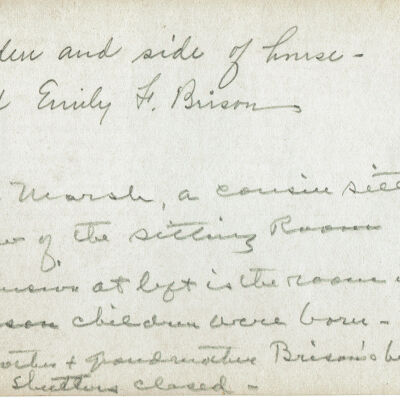 den and side of house -
Emily F. Brison
Marsh, a cousin sitt
of the sitting Room
at left is the room
son children were born -
+ grandmother Brison's b
Shutters closed -